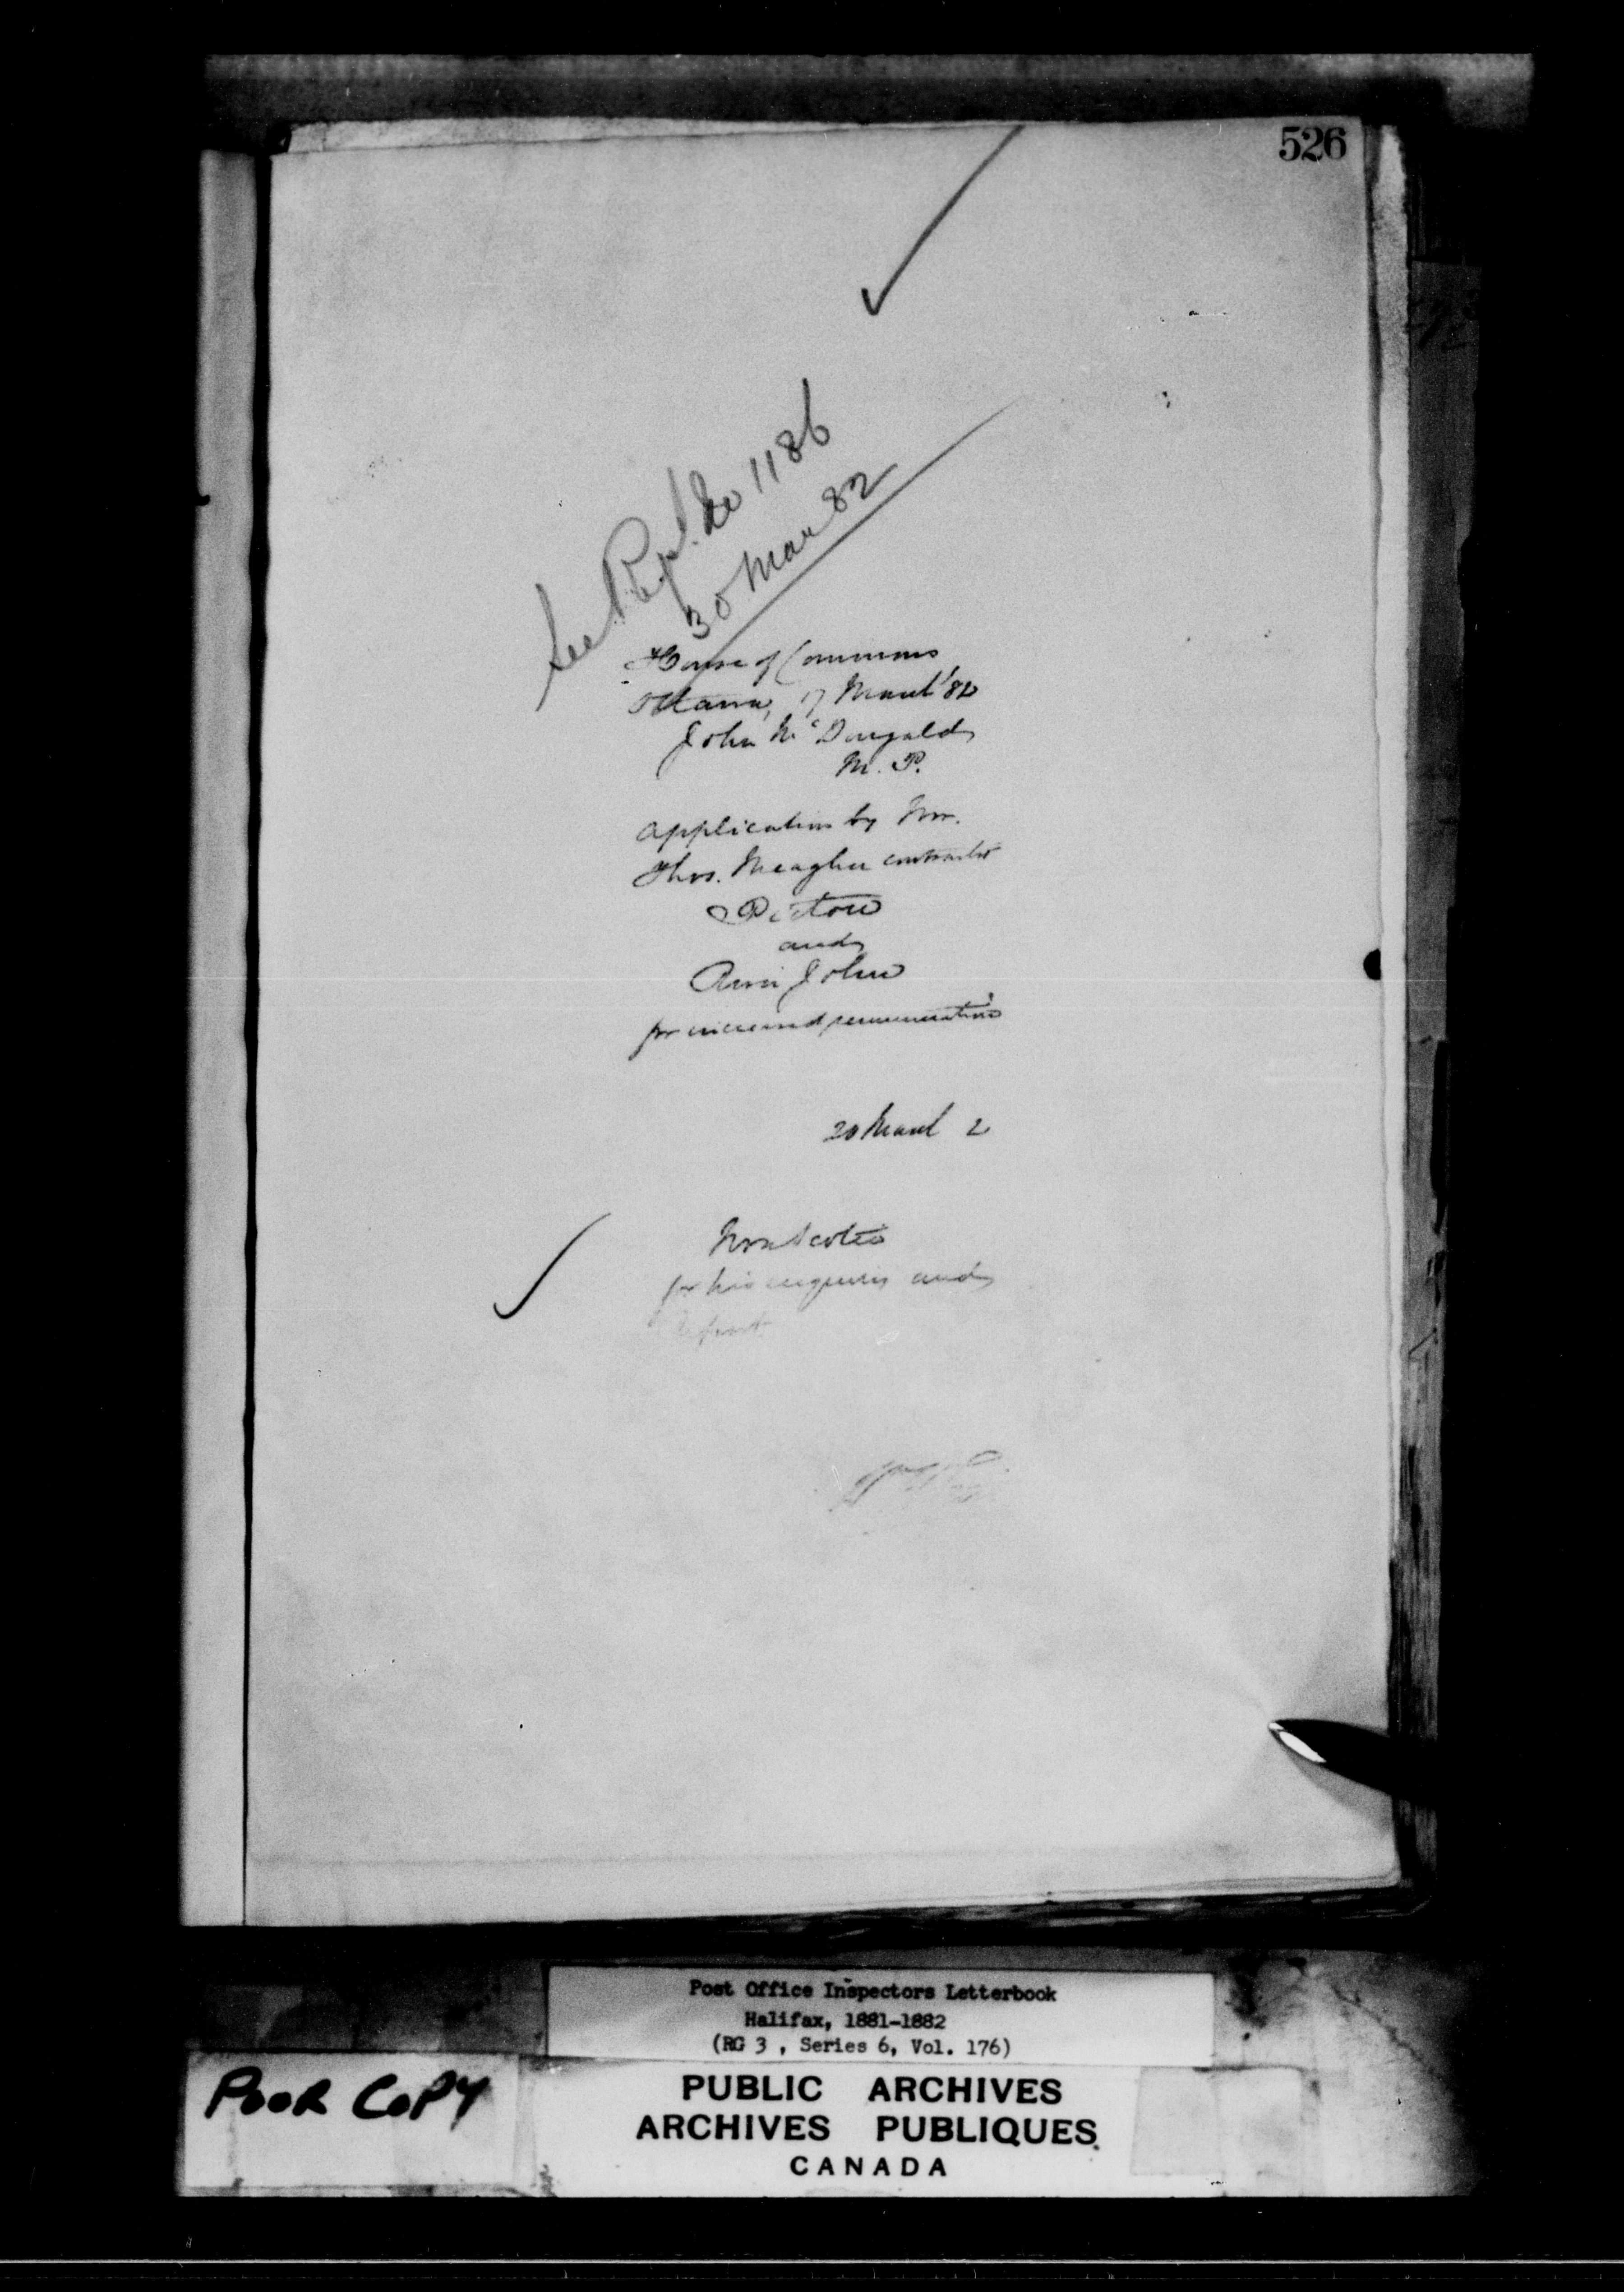 526
See Rept. No 1186
30 Mar 82
House of Commons
Ottawa, 17 March '82
John McDougald
M. P.
Application by Mr.
Thos. Meagher contractor
Pictou
and
River John
for increased remuneration
20 March 2
Nova Scotia
for his enquiry and
Report
Post Office Inspectors Letterbook
Halifax, 1881-1882
(RG 3 , Series 6, Vol. 176)
POOR COPY
PUBLIC ARCHIVES
ARCHIVES PUBLIQUES
CANADA